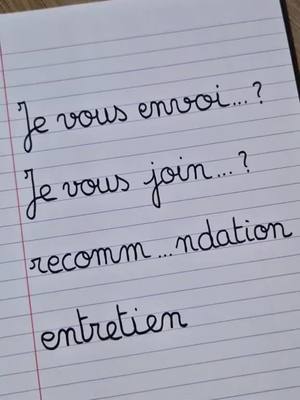 Je vous envoi...?
Je vous join...?
recomm...ndation
entretien